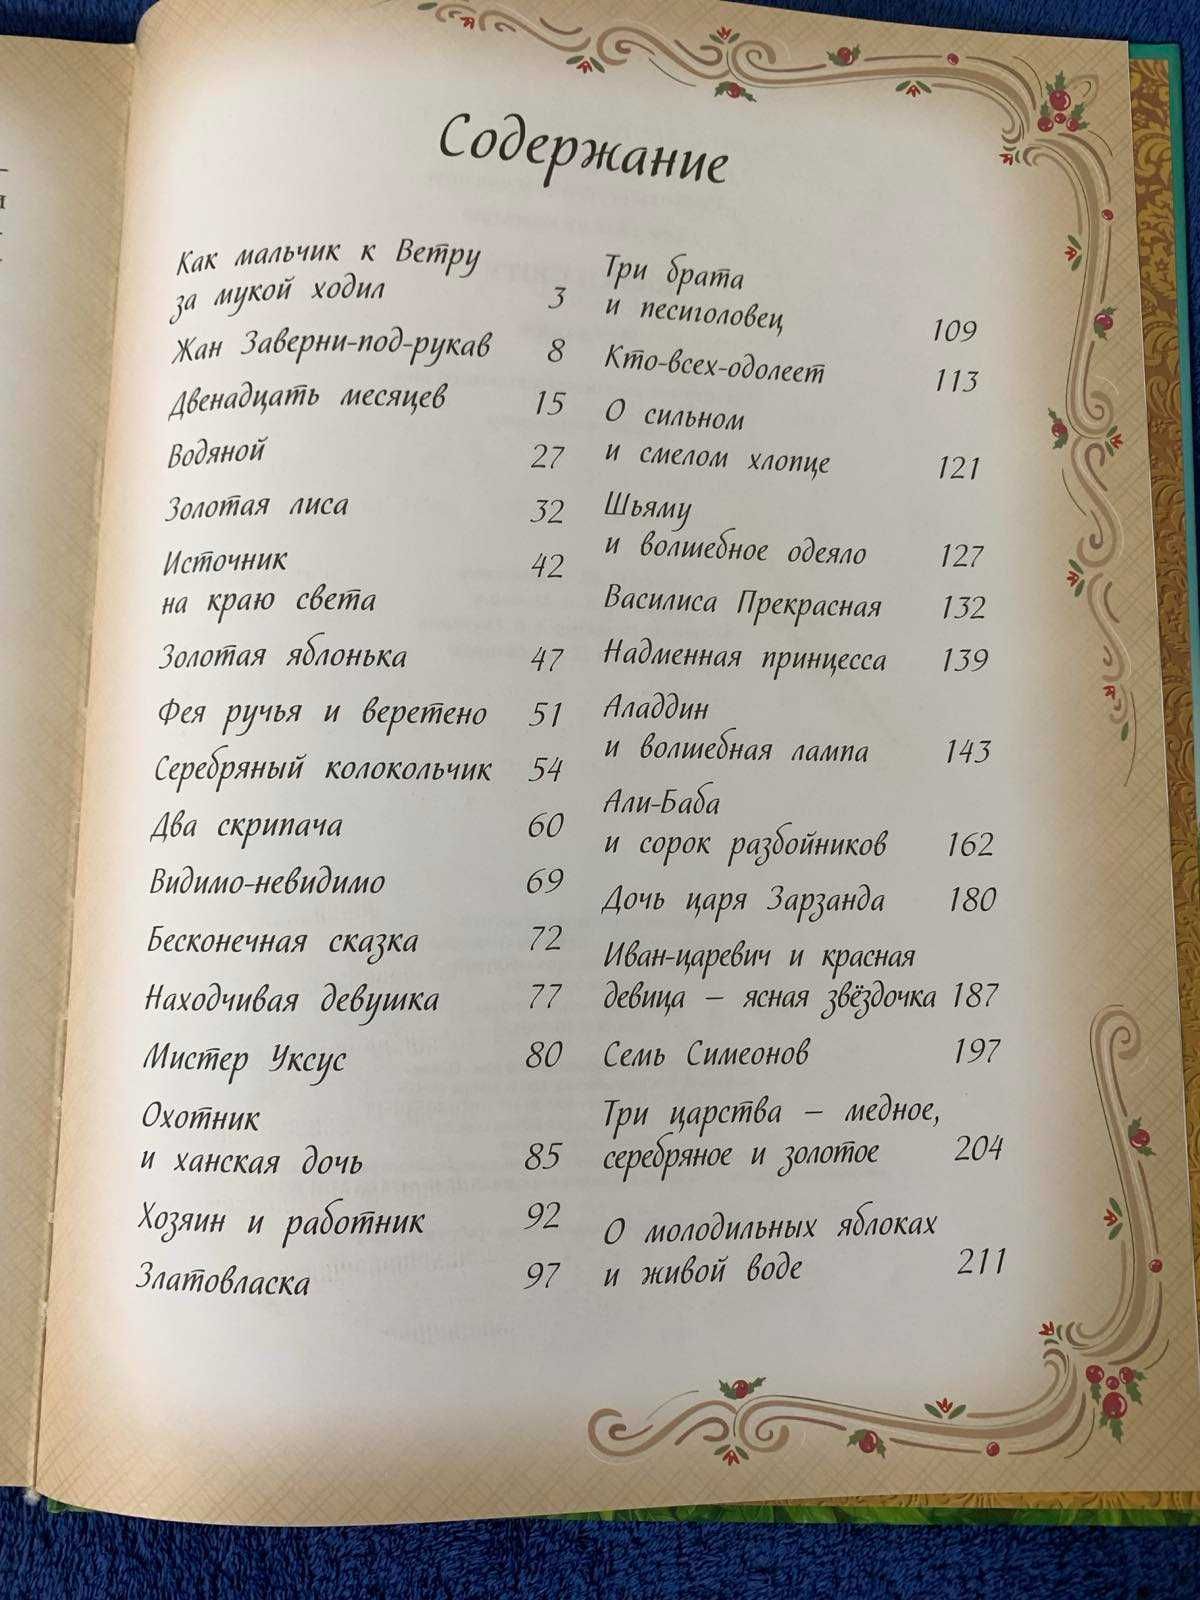 Содержание
Как мальчик к Ветру
за мукой ходил 3
Жан Заверни-под-рукав 8
Двенадцать месяцев 15
Водяной 27
Золотая лиса 32
Источник 42
на краю света
Золотая яблонька 47
Фея ручья и веретено 51
Серебряный колокольчик 54
Два скрипача 60
Видимо-невидимо 69
Бесконечная сказка 72
Находчивая девушка 77
Мистер Уксус 80
Охотник
и ханская дочь 85
Хозяин и работник 92
Златовласка 97
Три брата
и песиголовец 109
Кто-всех-одолеет 113
О сильном
и смелом хлопце 121
Шьяму
и волшебное одеяло 127
Василиса Прекрасная 132
Надменная принцесса 139
Аладдин
и волшебная лампа 143
Али-Баба
и сорок разбойников 162
Дочь царя Зарзанда 180
Иван-царевич и красная
девица – ясная звёздочка 187
Семь Симеонов 197
Три царства – медное,
серебряное и золотое 204
О молодильных яблоках
и живой воде 211